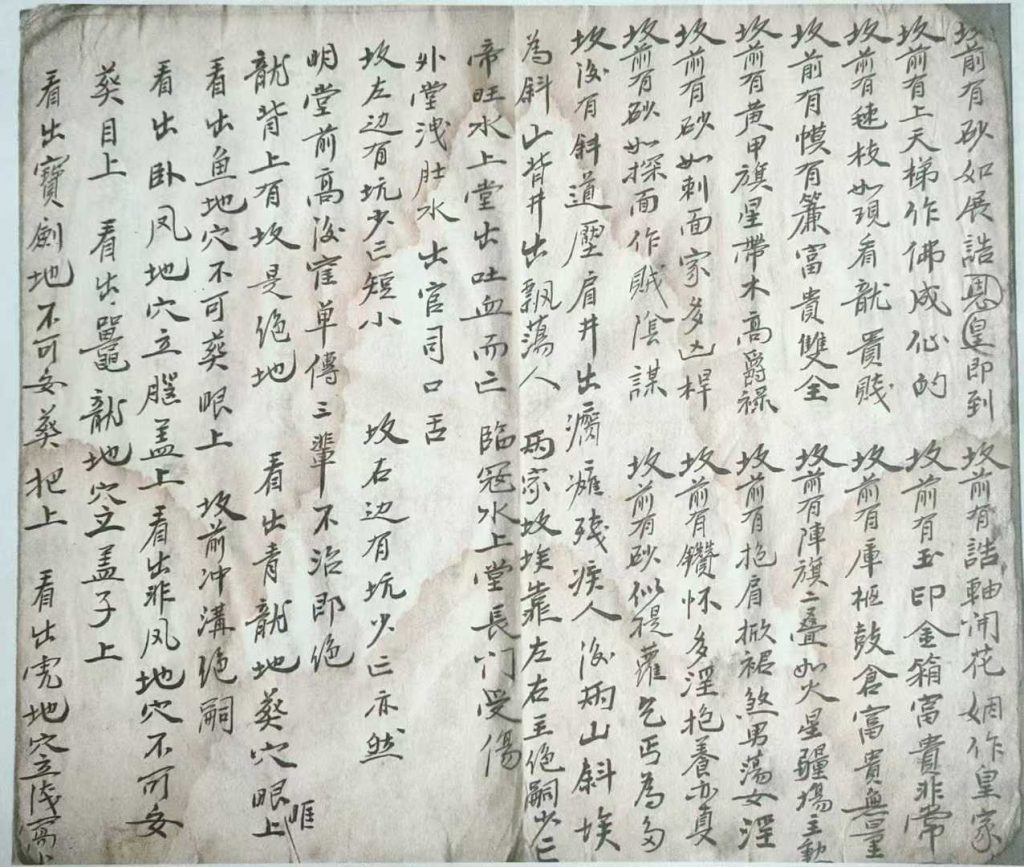 坟前有砂如展誥恩皇即到 坟前有誥軸開花姻作皇家
坟前有上天梯作佛成仙的 坟前有玉印金箱富貴非常
坟前有毬枝如現看龍貴賤 坟前有庫柜鼓倉富貴無量
坟前有幔有簾富貴雙全 坟前有陣旗二叠如火星疆場主動
坟前有黄甲旗星帶木高爵禄 坟前有抱肩掀裙煞男荡女淫
坟前有砂如刺面家多凶桿 坟前有鑽怀多淫抱養亦真
坟前有砂如探面作賊陰謀 坟前有砂似提蘿乞丐為多
坟後有斜道壓肩井出癘癱残疾人 後两山斜埃
為斜 山背井出飘蕩人 两家坟埃靠左右主绝嗣少亡
帝旺水上堂出吐血而亡 臨冠水上堂長门受伤
外堂洩肚水 出官司口舌
坟左边有坑少亡短小 坟右边有坑少亡亦然
明堂前高後窄单傳三輩不治即绝
龍背上有坟是绝地 看出青龍地葵穴眼上 睚
看出鱼地穴不可葵眼上 坟前冲溝绝嗣
看出卧凤地穴立膛盖上 看出非凤地穴不可安
葵目上 看出鼉龍地穴立盖子上
看出寶劍地不可安葵把上 看出虎地穴立